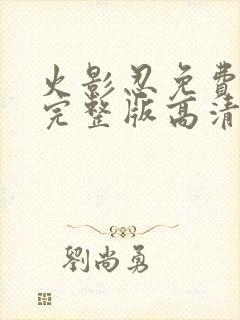 火影忍免費
完整版高清
劉尚勇